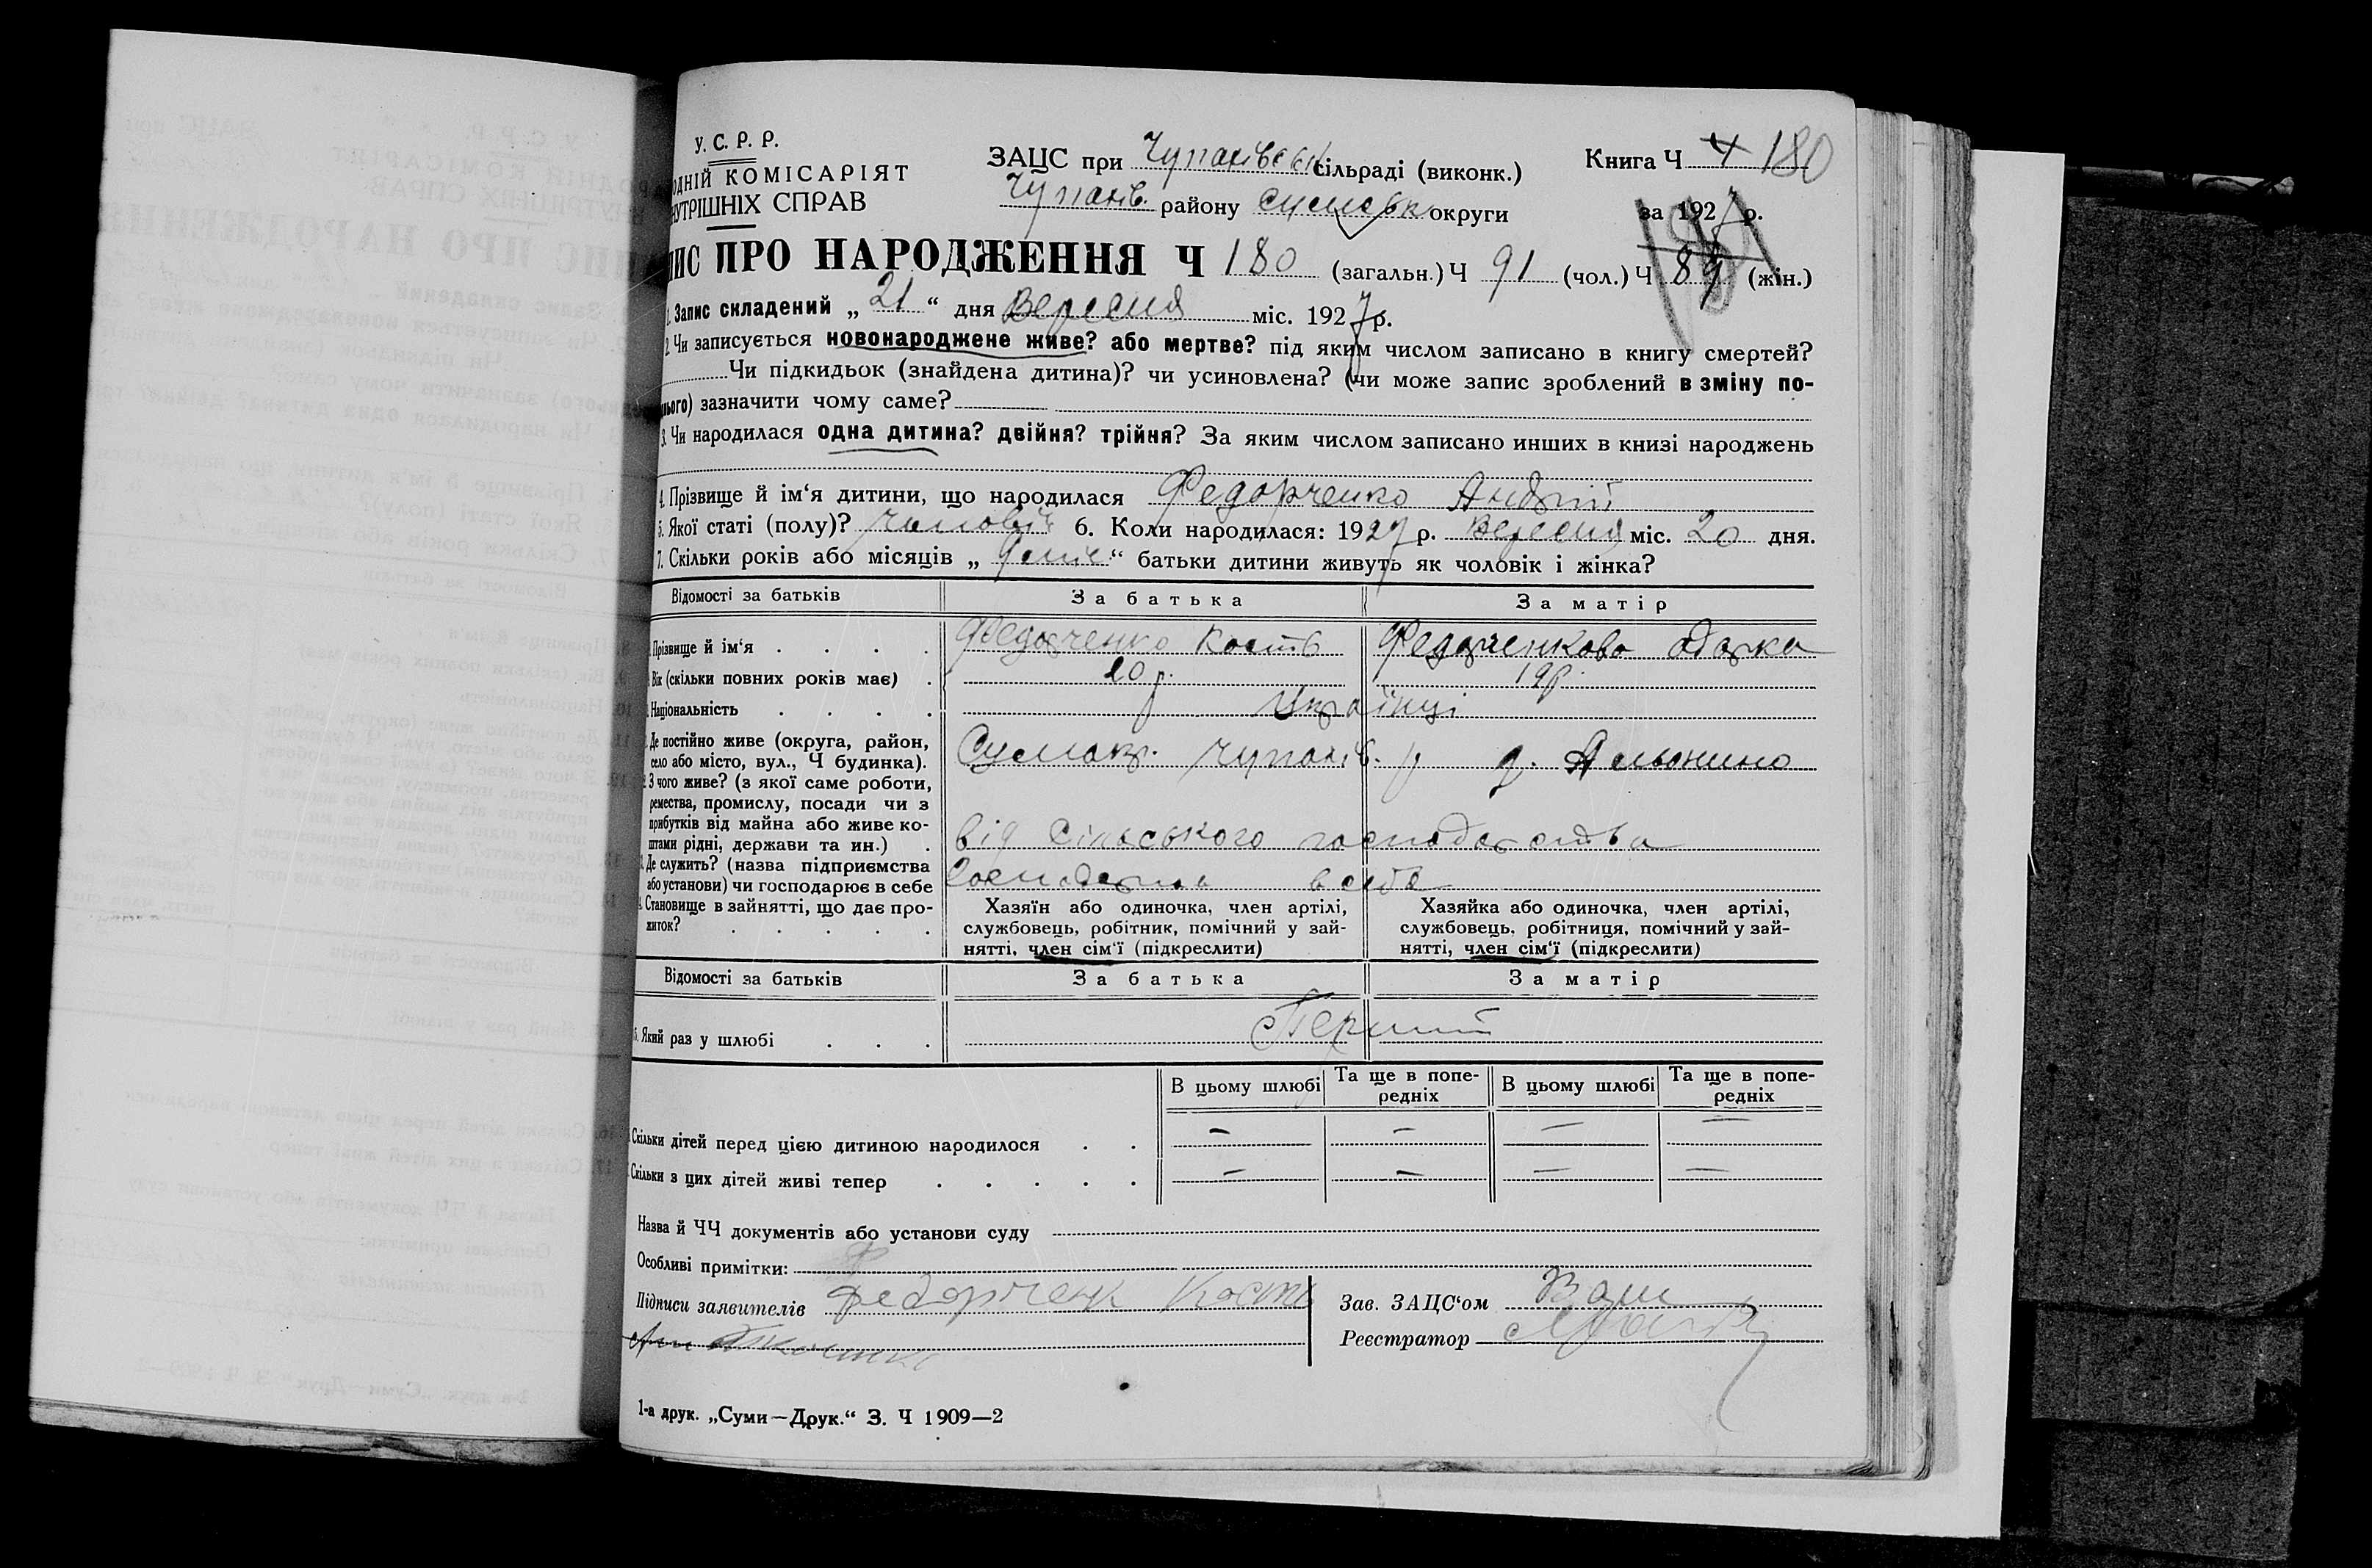 У. С. Р. Р.
ОДНІЙ КОМІСАРІЯТ
НУТРІШНІХ СПРАВ
ЗАЦС при Чупахівськ сільраді (виконк.)
Чупахів. району Сумськ округи
Книга Ч 4 180
за 1927 р.
ИС ПРО НАРОДЖЕННЯ Ч 180 (загальн.) Ч 91 (чол.) Ч 89 (жін.)
1. Запис складений „ 21 “ дня Вересня міс. 1927 р.
2. Чи записується новонароджене живе? або мертве? під яким числом записано в книгу смертей?
Чи підкидьок (знайдена дитина)? чи усиновлена? (чи може запис зроблений в зміну по-
нього) зазначити чому саме?
3. Чи народилася одна дитина? двійня? трійня? За яким числом записано инших в книзі народжень
4. Прізвище й ім‘я дитини, що народилася Федорченко Андрій
5. Якої статі (полу)? чоловіч 6. Коли народилася: 1927 р. Вересня міс. 20 дня.
7. Скільки років або місяців „ “ батьки дитини живуть як чоловік і жінка?
Відомості за батьків За батька За матір
Прізвище й ім‘я Федорченко Кость Федорченкова Одарка
Вік (скільки повних років має) 20 р. 19 р.
Національність Українці
Де постійно живе (округа, район,
село або місто, вул., Ч будинка). Чупахів. р
З чого живе? (з якої саме роботи,
ремества, промислу, посади чи з
прибутків від майна або живе ко-
штами рідні, держави та ин.) від сільського господарства
Де служить? (назва підприємства
або установи) чи господарює в себе в себе
Становище в зайнятті, що дає про-
житок?
Хазяїн або одиночка, член артілі,
службовець, робітник, помічний у зай-
нятті, член сім‘ї (підкреслити)
Хазяйка або одиночка, член артілі,
службовець, робітниця, помічний у зай-
нятті, член сім‘ї (підкреслити)
Відомості за батьків За батька За матір
Який раз у шлюбі Перший
В цьому шлюбі Та ще в попе-
редніх В цьому шлюбі Та ще в попе-
редніх
Скільки дітей перед цією дитиною народилося — — — —
Скільки з цих дітей живі тепер — — — —
Назва й ЧЧ документів або установи суду
Особливі примітки:
Підписи заявителів Федорченк Кость
Зав. ЗАЦС‘ом
Реєстратор
1-а друк. „Суми—Друк.“ З. Ч 1909—2